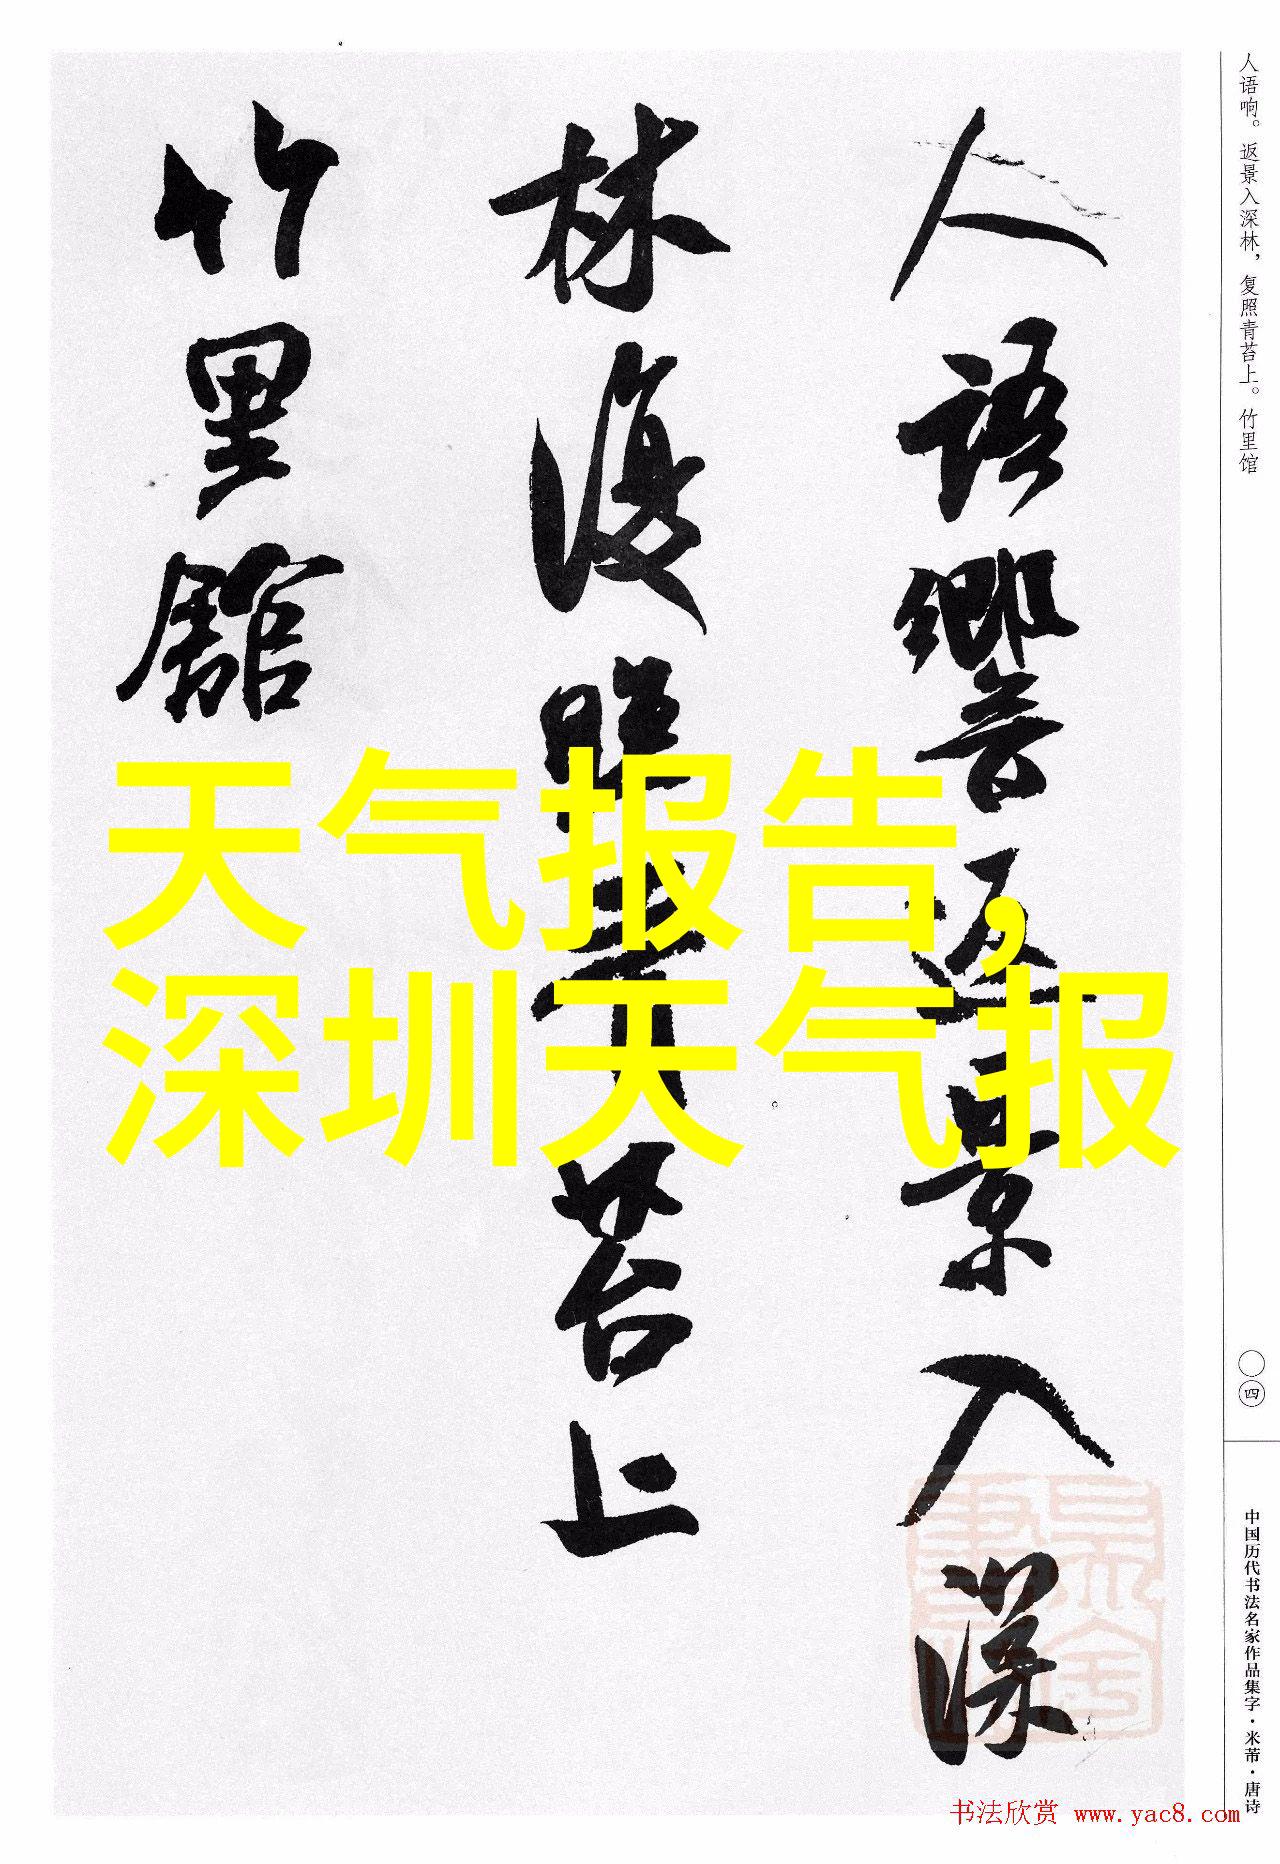 人語響返景入深
林復照青苔上
竹里館
天气报告,
深圳天气报
人语响。返景入深林，复照青苔上。竹里馆
〇四
中国历代书法名家作品集字·米芾·唐诗
书法欣赏 www.yac8.com